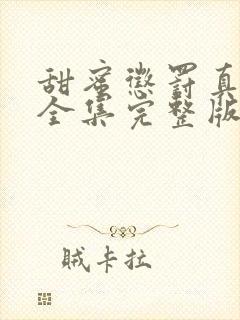 甜蜜懲罰真
全集完整版
贼卡拉